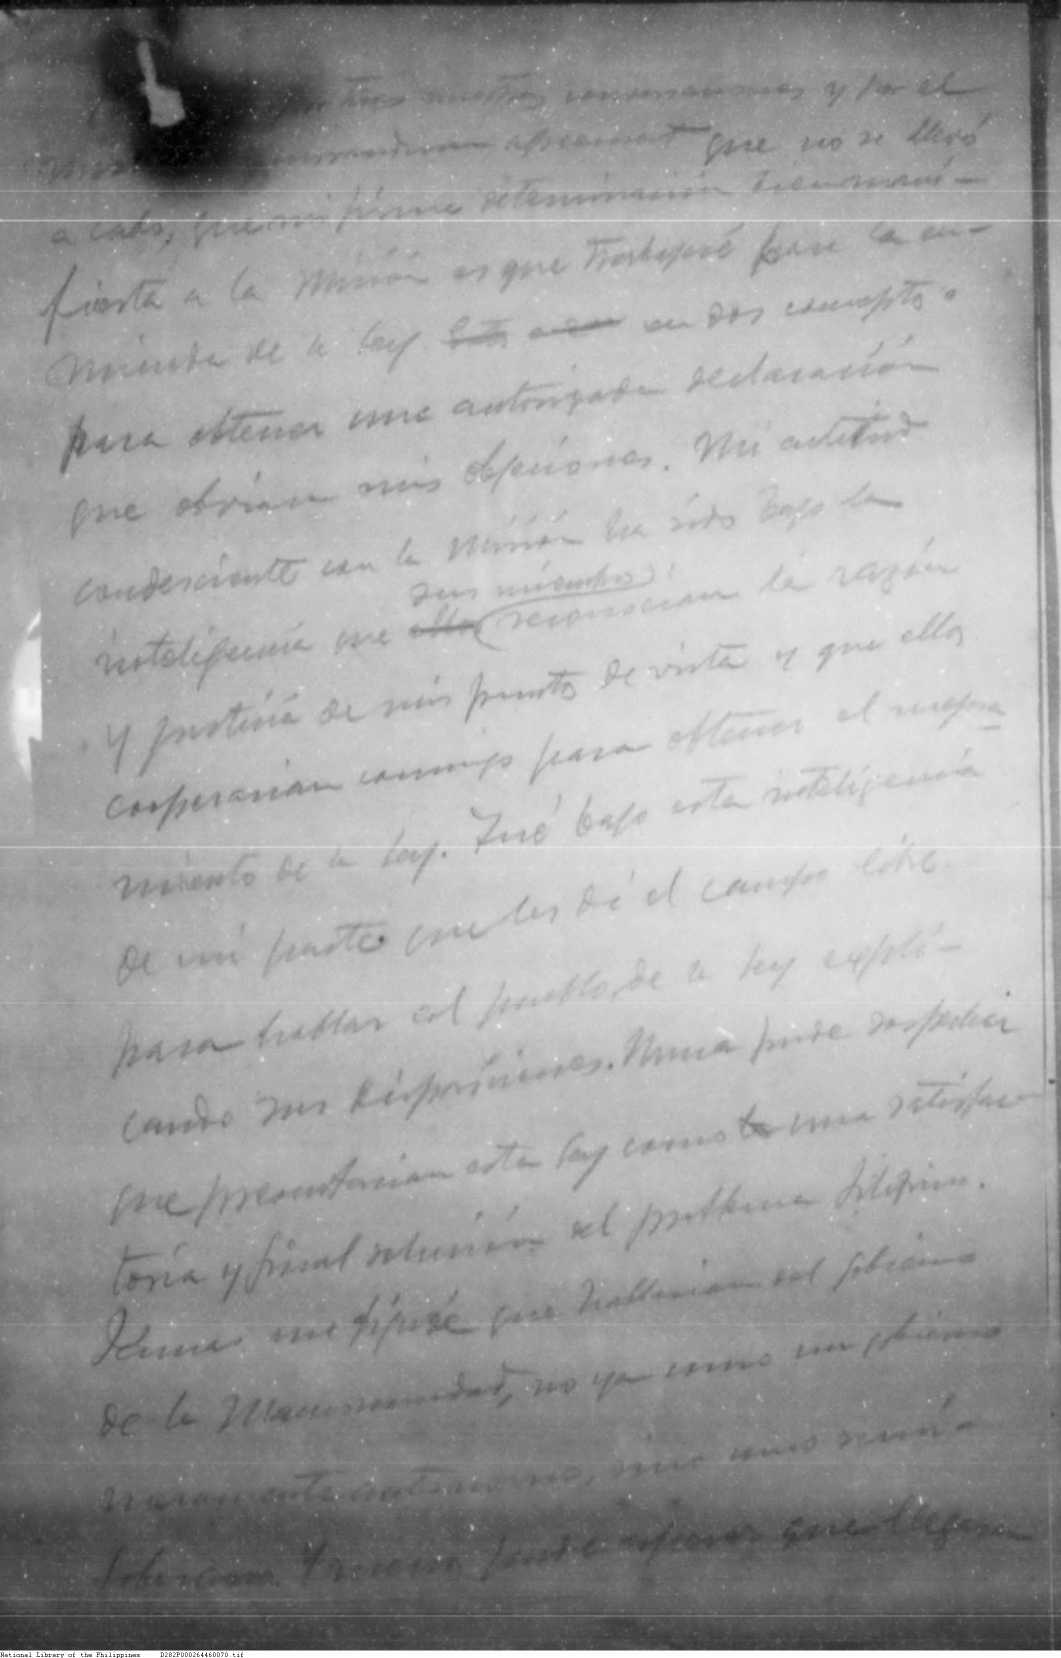 nuestras conversaciones y por el
memorandum agreement que no se llevó
a cabo, que mi firme determinación bien mani-
fiesta a la Misión es que trabajaré para la en-
mienda de la ley en dos conceptos o
para obtener una autorizada declaración
que obvian mis objeciones. Mi actitud
condesciente con la Misión ha sido bajo la
sus miembros
inteligencia que ellos reconocian la razón
y justicia de mis puntos de vista y que ellos
cooperarian conmigo para obtener el mejora
miento de la ley. Fué bajo esta inteligencia
de mi parte que les dí el campo libre
para hablar al pueblo de la ley expli-
cando sus disposiciones. Nunca pude sospechar
que presentarian esta ley como la una satisfac-
toria y final solución del problema filipino.
Jamas me figuré que hablarian del gobierno
de la Mancomunidad, no ya como un gobierno
meramente autonomo, sino como semi-
soberano. Y nunca pude esperar que llegaran